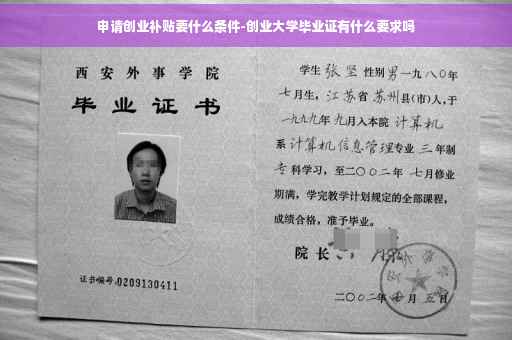 申请创业补贴要什么条件-创业大学毕业证有什么要求吗
西安外事学院
毕业证书
证书编号:0209130411
学生 张坚 性别 男 一九八〇年
七月生，江苏省 苏州县(市)人，于
一九九九年 九月入本院 计算机
系 计算机信息管理专业 三 年制
专科学习，至二〇〇二年 七月修业
期满，学完教学计划规定的全部课程，
成绩合格，准予毕业。
院长
二〇〇二年 月 五日